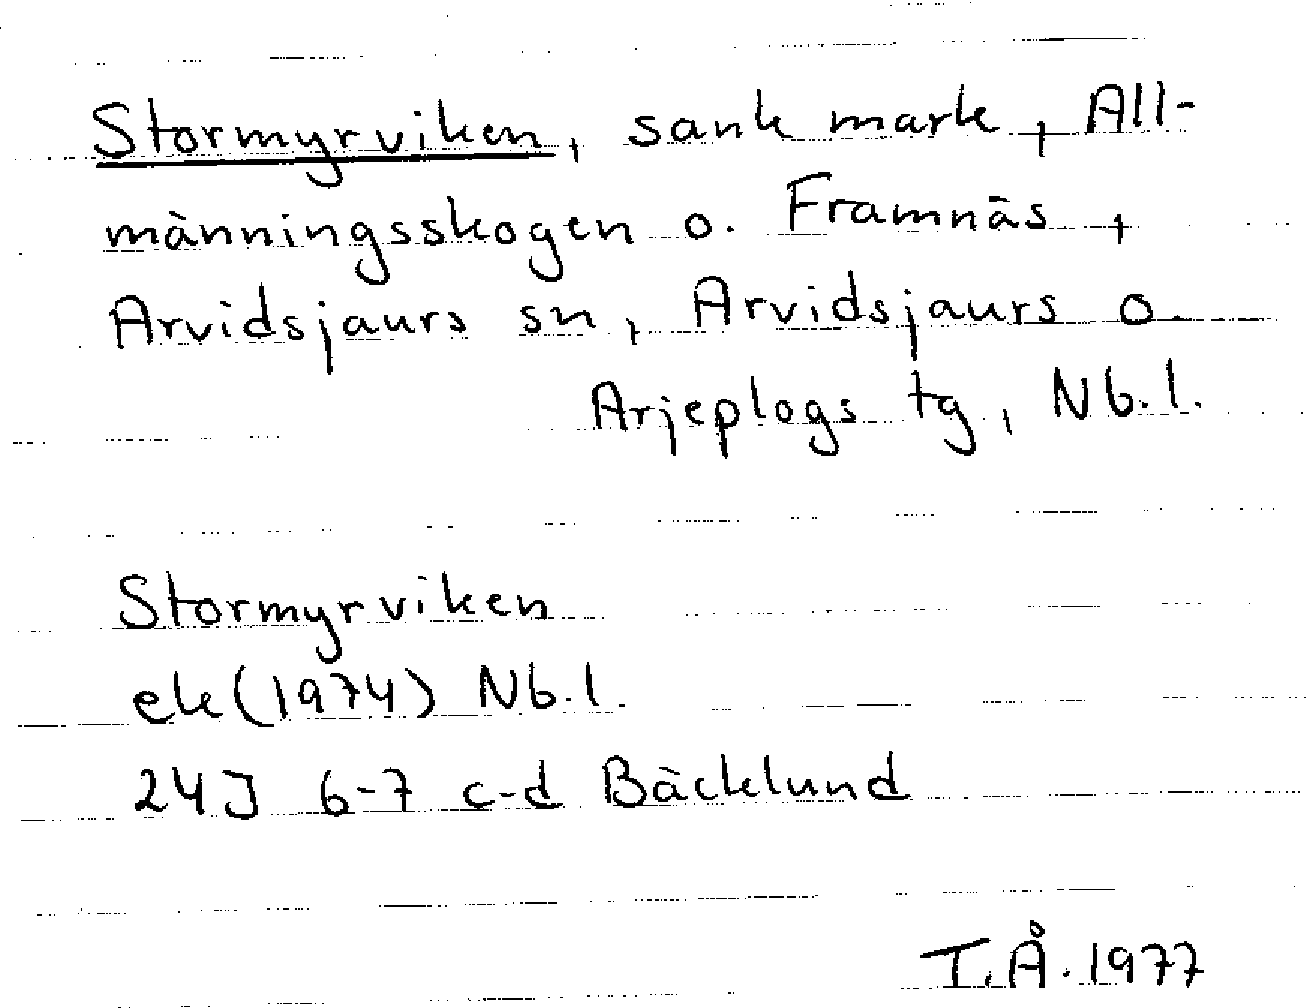 Stormyrviken, sank mark, All-
männingsskogen o. Framnäs,
Arvidsjaurs sn, Arvidsjaurs o.
Arjeplogs tg, Nb.l.
Stormyrviken
ek(1974) Nb.l.
24J 6-7 c-d Bäcklund
I.Å.1977